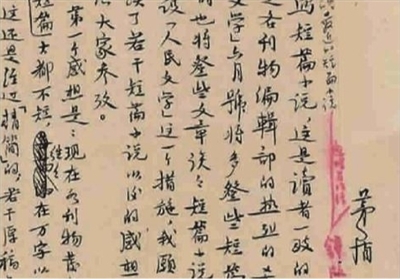 谈最近的短篇小说
茅盾
短篇小说，这是读者一致的
各刊物编辑部的热烈的
文学》六月號将多登些短篇
时也将登些文章谈谈短篇小说
设《人民文学》这一个措施，我颐
读了若干短篇小说以后的感想
大家参攷。
第一个感想是：现在各刊物登
短篇大都不短，往往在万字以
这还是经过“精简”的，若干厚稿